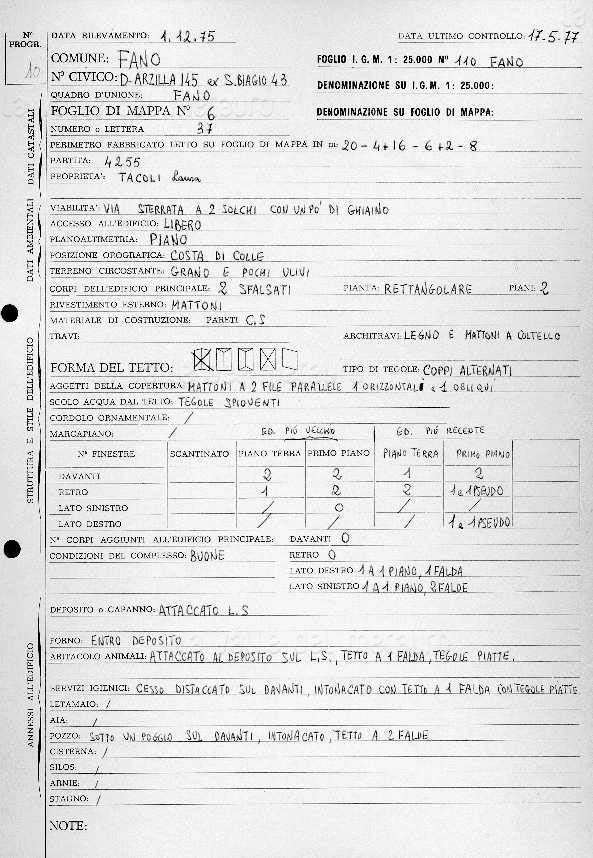 N° PROGR. 10
DATA RILEVAMENTO: 1.12.75 DATA ULTIMO CONTROLLO: 17-5-77
COMUNE: FANO FOGLIO I.G.M. 1: 25.000 N° 110 FANO
N° CIVICO: D-ARZILLA 145 ex S.BIAGIO 43 DENOMINAZIONE SU I.G.M. 1: 25.000:
QUADRO D'UNIONE: FANO
FOGLIO DI MAPPA N° 6 DENOMINAZIONE SU FOGLIO DI MAPPA:
NUMERO o LETTERA 37
PERIMETRO FABBRICATO LETTO SU FOGLIO DI MAPPA IN m: 20-4+16-6+2-8
PARTITA: 4255
PROPRIETA': TACOLI Laura
DATI CATASTALI
VIABILITA': VIA STERRATA A 2 SOLCHI CON UN PO' DI GHIAINO
ACCESSO ALL'EDIFICIO: LIBERO
PLANOALTIMETRIA: PIANO
POSIZIONE OROGRAFICA: COSTA DI COLLE
TERRENO CIRCOSTANTE: GRANO E POCHI ULIVI
DATI AMBIENTALI
CORPI DELL'EDIFICIO PRINCIPALE: 2 SFALSATI PIANTA: RETTANGOLARE PIANI: 2
RIVESTIMENTO ESTERNO: MATTONI
MATERIALE DI COSTRUZIONE: PARETI C.S
TRAVI: ARCHITRAVI: LEGNO E MATTONI A COLTELLO
FORMA DEL TETTO: TIPO DI TEGOLE: COPPI ALTERNATI
AGGETTI DELLA COPERTURA: MATTONI A 2 FILE PARALLELE 1 ORIZZONTALE e 1 OBLIQUI
SCOLO ACQUA DAL TETTO: TEGOLE SPIOVENTI
CORDOLO ORNAMENTALE: /
MARCAPIANO: / ED. PIÚ VECCHIO ED. PIÚ RECENTE
N° FINESTRE SCANTINATO PIANO TERRA PRIMO PIANO PIANO TERRA PRIMO PIANO
DAVANTI 2 2 1 2
RETRO 1 2 2 1 e 1 PSEUDO
LATO SINISTRO / 0 / /
LATO DESTRO / / / 1 e 1 PSEUDO
STRUTTURA E STILE DELL'EDIFICIO
N° CORPI AGGIUNTI ALL'EDIFICIO PRINCIPALE: DAVANTI 0
CONDIZIONI DEL COMPLESSO: BUONE RETRO 0
LATO DESTRO 1 A 1 PIANO, 1 FALDA
LATO SINISTRO 1 A 1 PIANO, 2 FALDE
DEPOSITO o CAPANNO: ATTACCATO L.S
FORNO: ENTRO DEPOSITO
ABITACOLO ANIMALI: ATTACCATO AL DEPOSITO SUL L.S., TETTO A 1 FALDA, TEGOLE PIATTE.
SERVIZI IGIENICI: CESSO DISTACCATO SUL DAVANTI, INTONACATO CON TETTO A 1 FALDA CON TEGOLE PIATTE
LETAMAIO: /
AIA: /
POZZO: SOTTO UN POGGIO SUL DAVANTI, INTONACATO, TETTO A 2 FALDE
CISTERNA: /
SILOS: /
ARNIE: /
STAGNO: /
ANNESSI ALL'EDIFICIO
NOTE: